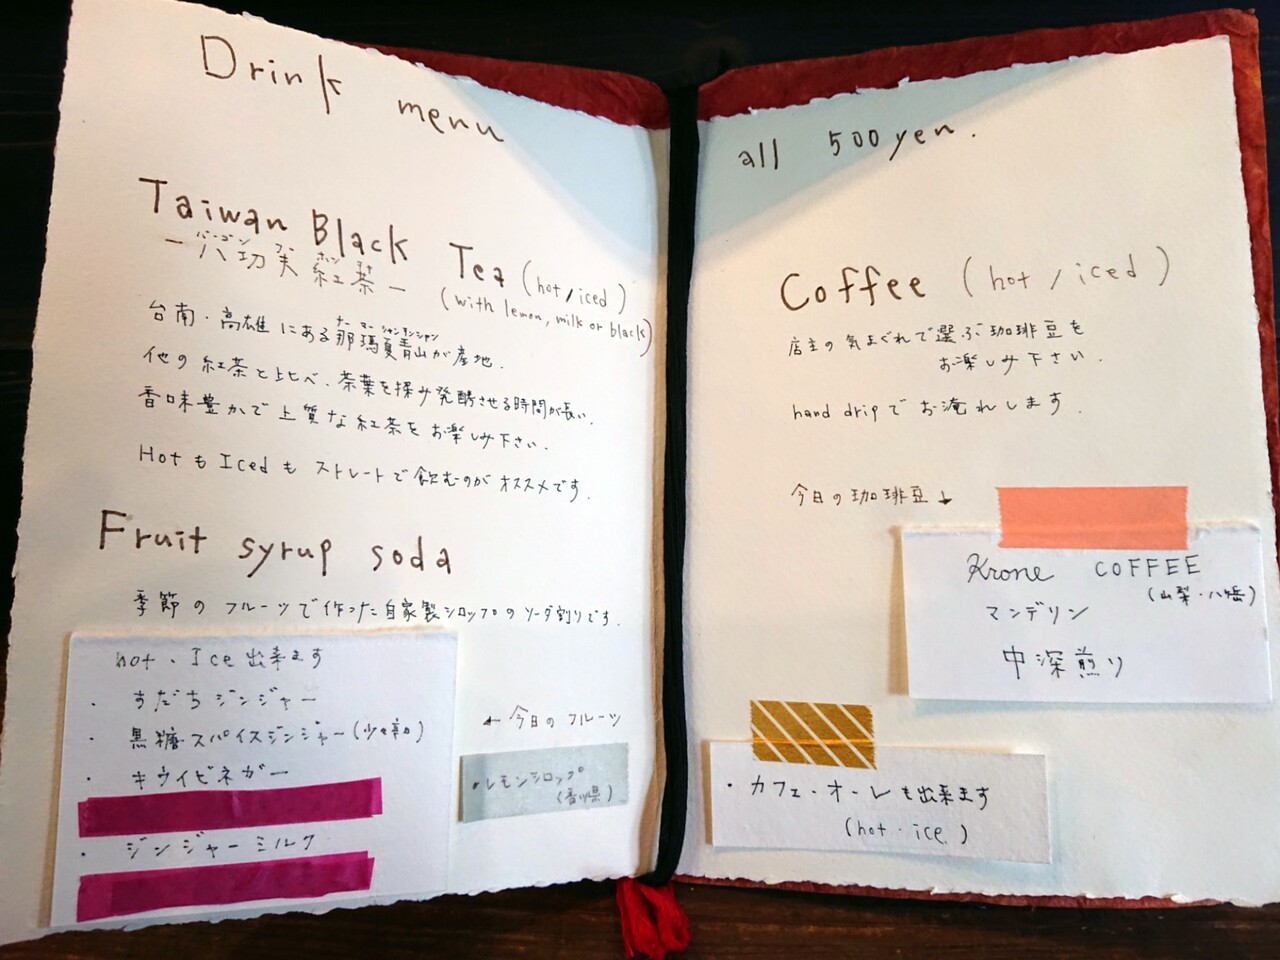 Drink menu
Taiwan Black Tea (hot/iced)
(with lemon, milk or black)
－八功夫紅茶－
台南・高雄にある那瑪夏青山が産地.
他の紅茶と比べ、茶葉を揉み発酵させる時間が長い.
香味豊かで上質な紅茶をお楽しみ下さい.
HotもIcedもストレートで飲むのがオススメです.
Fruit syrup soda
季節のフルーツで作った自家製シロップのソーダ割りです.
hot・Ice出来ます
・すだちジンジャー
・黒糖スパイスジンジャー(少々辛口)
・キウイビネガー
・ジンジャーミルク
←今日のフルーツ
・レモンシロップ
(香川県)
all 500yen.
Coffee (hot/iced)
店主の気まぐれで選ぶ珈琲豆を
お楽しみ下さい.
hand dripでお淹れします.
今日の珈琲豆↓
Krone COFFEE
(山梨・八ヶ岳)
マンデリン
中深煎り
・カフェ・オーレも出来ます
(hot・ice)